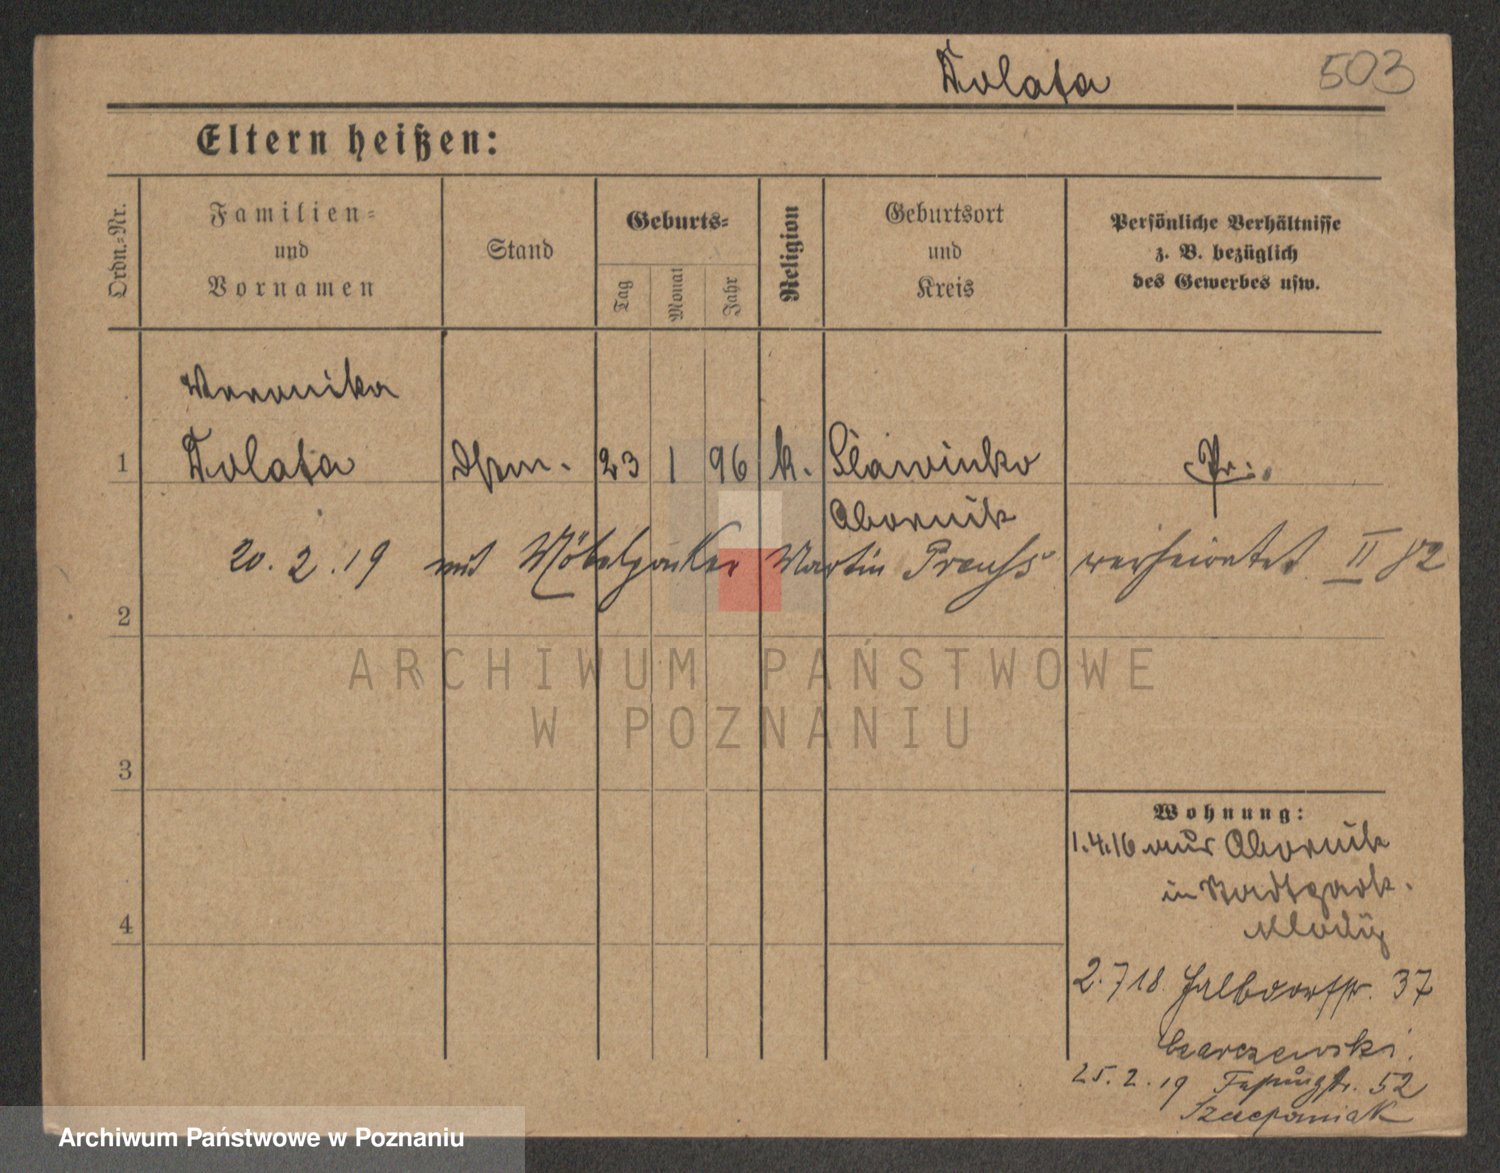 Tolata 503
Eltern heißen:
Ordn.-Nr.
Familien-
und
Vornamen
Stand
Geburts-
Tag
Monat
Jahr
Religion
Geburtsort
und
Kreis
Persönliche Verhältnisse
z. B. bezüglich
des Gewerbes usw.
Veronika
1 Tolata 23 1 96 k. Slawinko Pr.
Obornik
20.2.19 mit Möbelpacker Martin Preuss verheiratet II 82
2
ARCHIWUM PAŃSTWOWE
W POZNANIU
3
Wohnung:
1.4.16 aus Obornik
in Stadtpark.
4
2.7 18. Halbdorfstr. 37
25.2.19 52
Szczepaniak
Archiwum Państwowe w Poznaniu